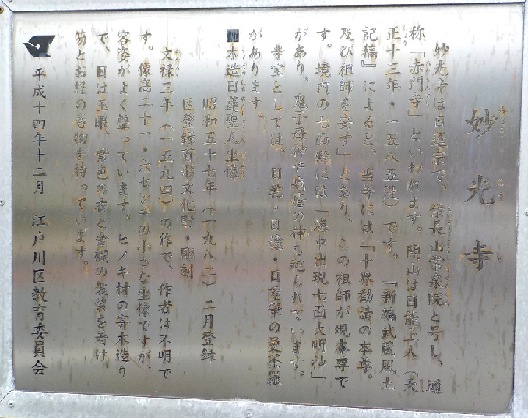 妙光寺
妙光寺は日蓮宗で、常長山常泉院と号し、通
称「赤門寺」といわれます。開山は日能上人（天
正十三年・一五八五没）です。『新編武蔵風土
記稿』によると、当寺には「十界勧請の本尊。
及び祖師を安す」とあり、この祖師が現本尊で
す。境内の七面堂には「海中出現七面大明神」
があり、鬼子母神
祀られています。
寺宝としては、日
があります。
■木造日蓮聖人坐像
昭和五十七年（一九八二）二月登録
区登録有形文化財・彫刻
文禄三年（一五九四）の作で、作者は不明で
す。像高二十一・六センチの小さな坐像ですが、
容姿がよく整っています。ヒノキ材の寄木造り
で、目は玉眼、紫色の衣と金襴の袈裟を着け、
笏とお経の巻物を持っています。
平成十四年十二月 江戸川区教育委員会